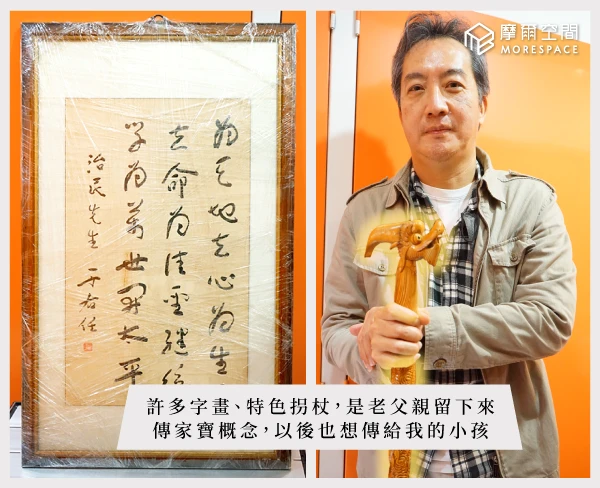 摩爾空間
MORESPACE
為天地立心為生
立命為往聖繼絕
學為萬世開太平
治民先生 于右任
許多字畫、特色拐杖，是老父親留下來
傳家寶概念，以後也想傳給我的小孩